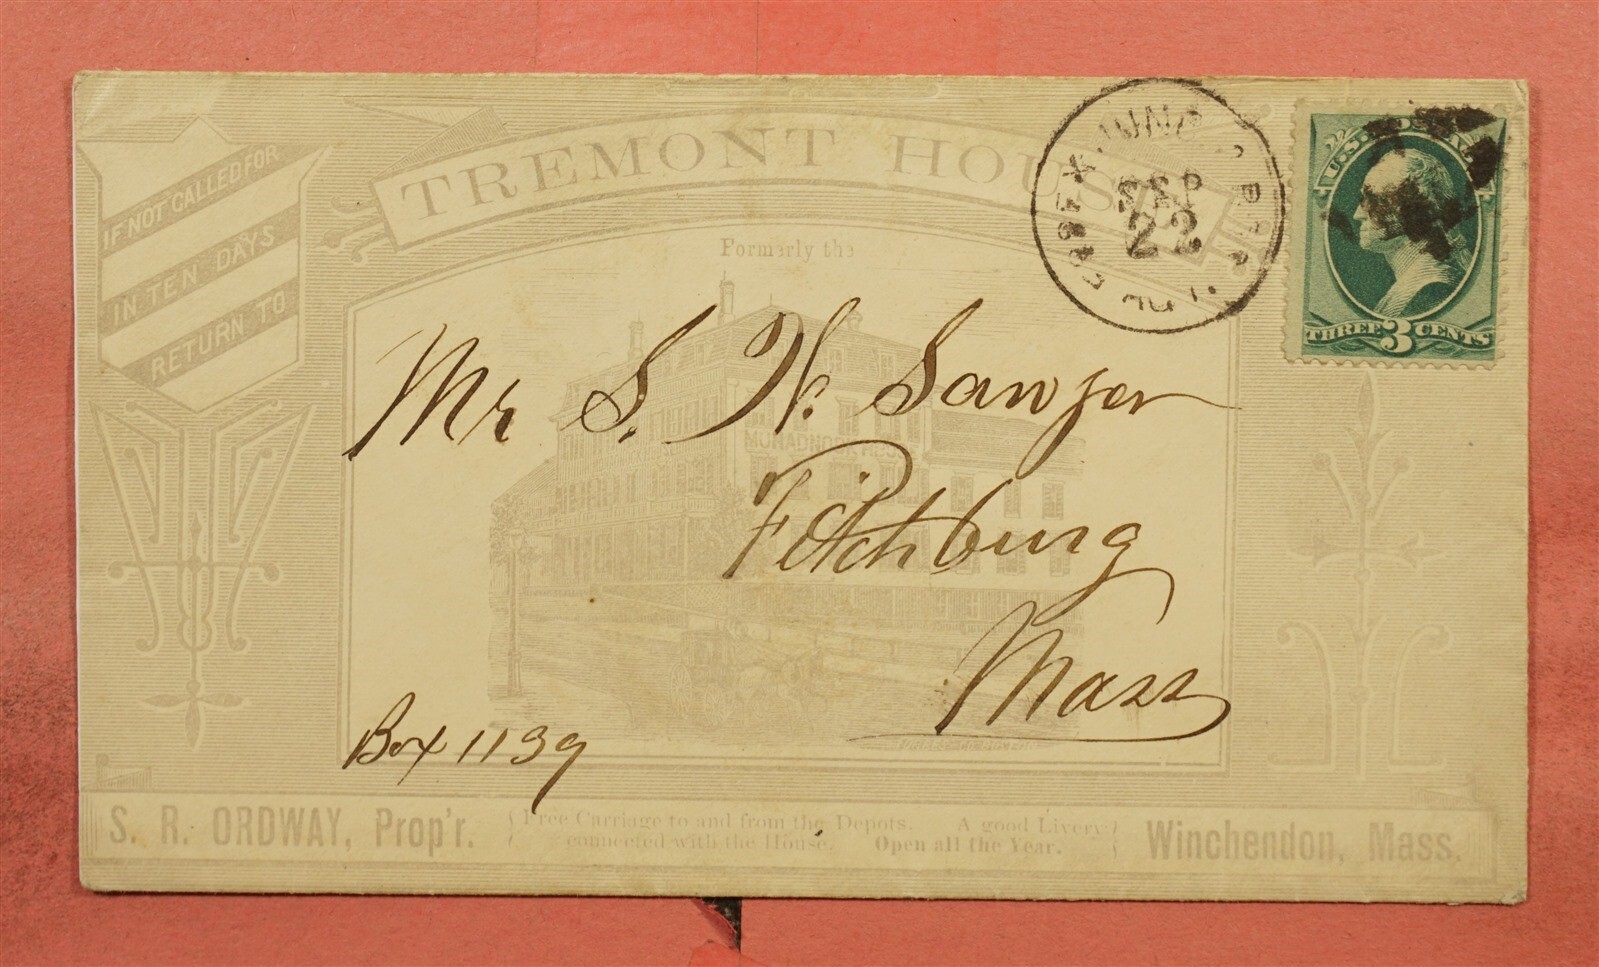 TREMONT HOUSE
Formerly the
IF NOT CALLED FOR
IN TEN DAYS
RETURN TO
SEP
22
U.S.
THREE 3 CENTS
Mr S. W. Sawyer
MONADNOCK HOUSE
Fitchburg
Mass
Box 1139
S. R. ORDWAY, Prop'r.
Free Carriage to and from the Depots. A good Livery
connected with the House. Open all the Year.
Winchendon, Mass.